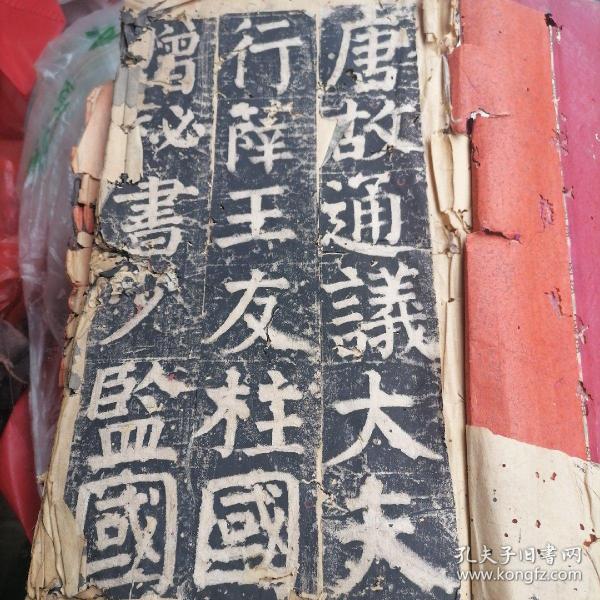 唐故通議大夫
行薛王友柱國
贈秘書少監國
孔夫子旧书网
www.kongfz.com